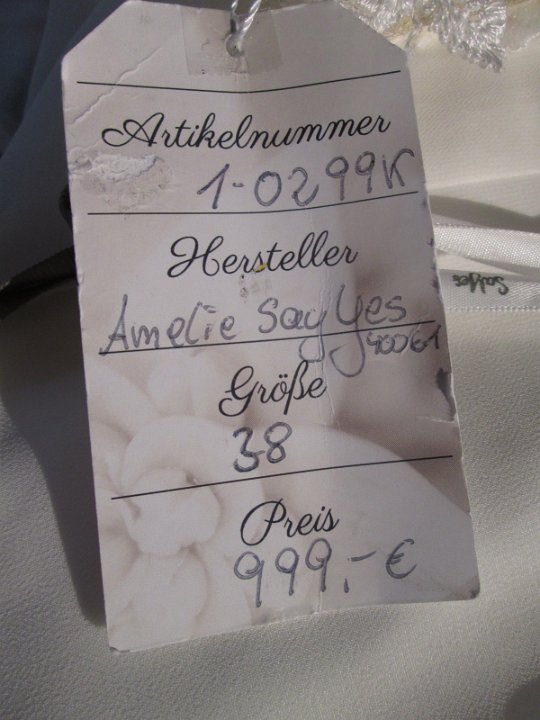 Artikelnummer
1-0299K
Hersteller
Amelie Say Yes
40061
Größe
38
Preis
999,- €
SayYes